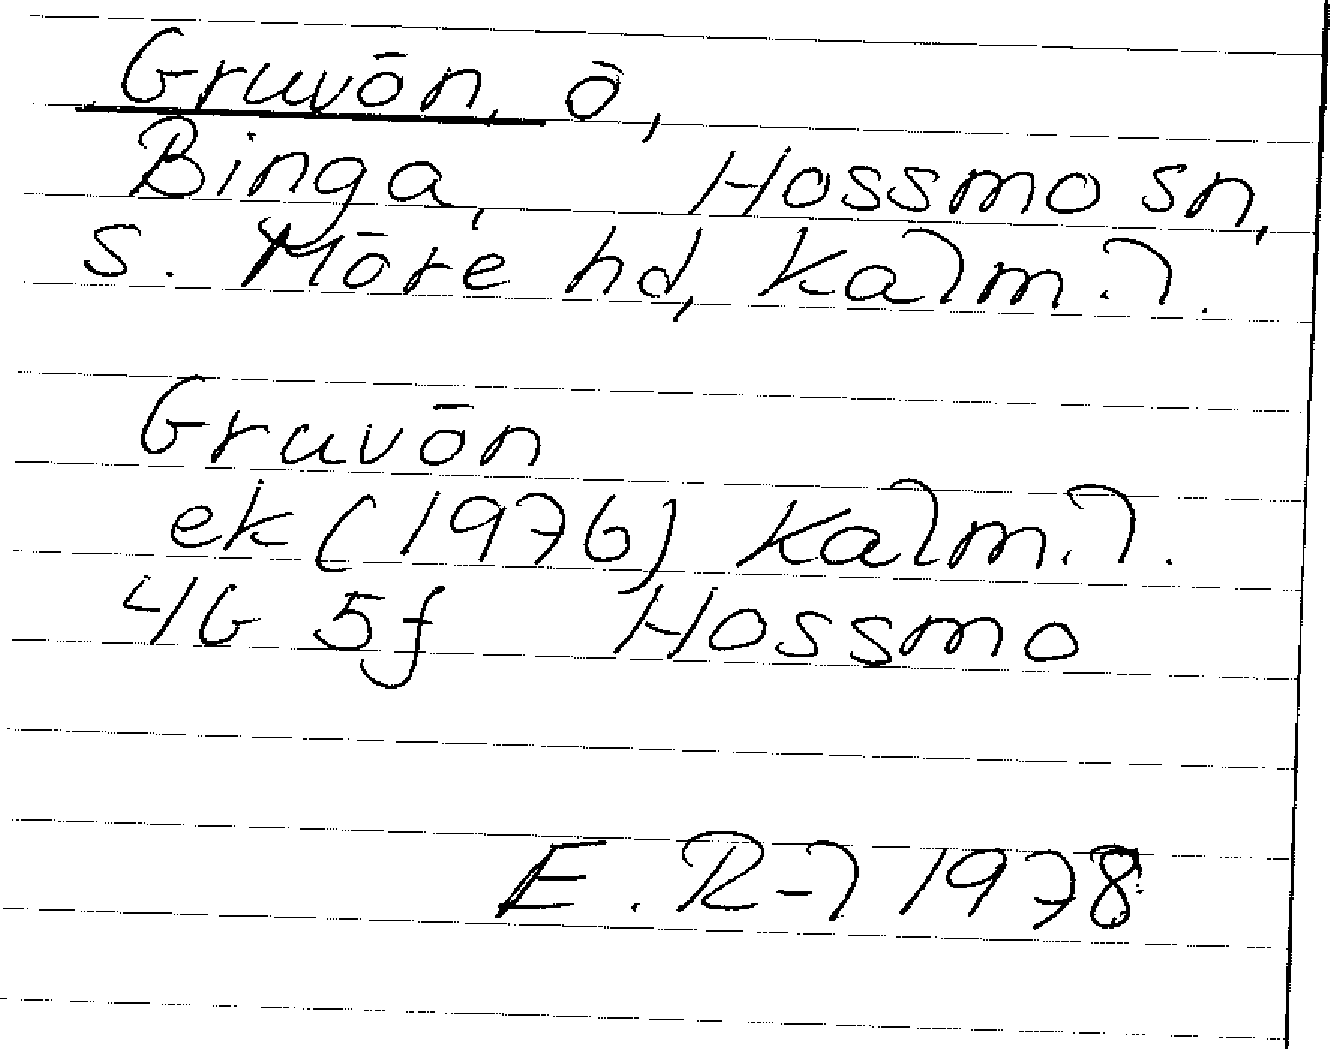 Gruvön, ö,
Binga, Hossmo sn,
S. Möre hd, Kalm. l.
Gruvön
ek (1976) Kalm. l.
4G 5f Hossmo
E. R-l 1978